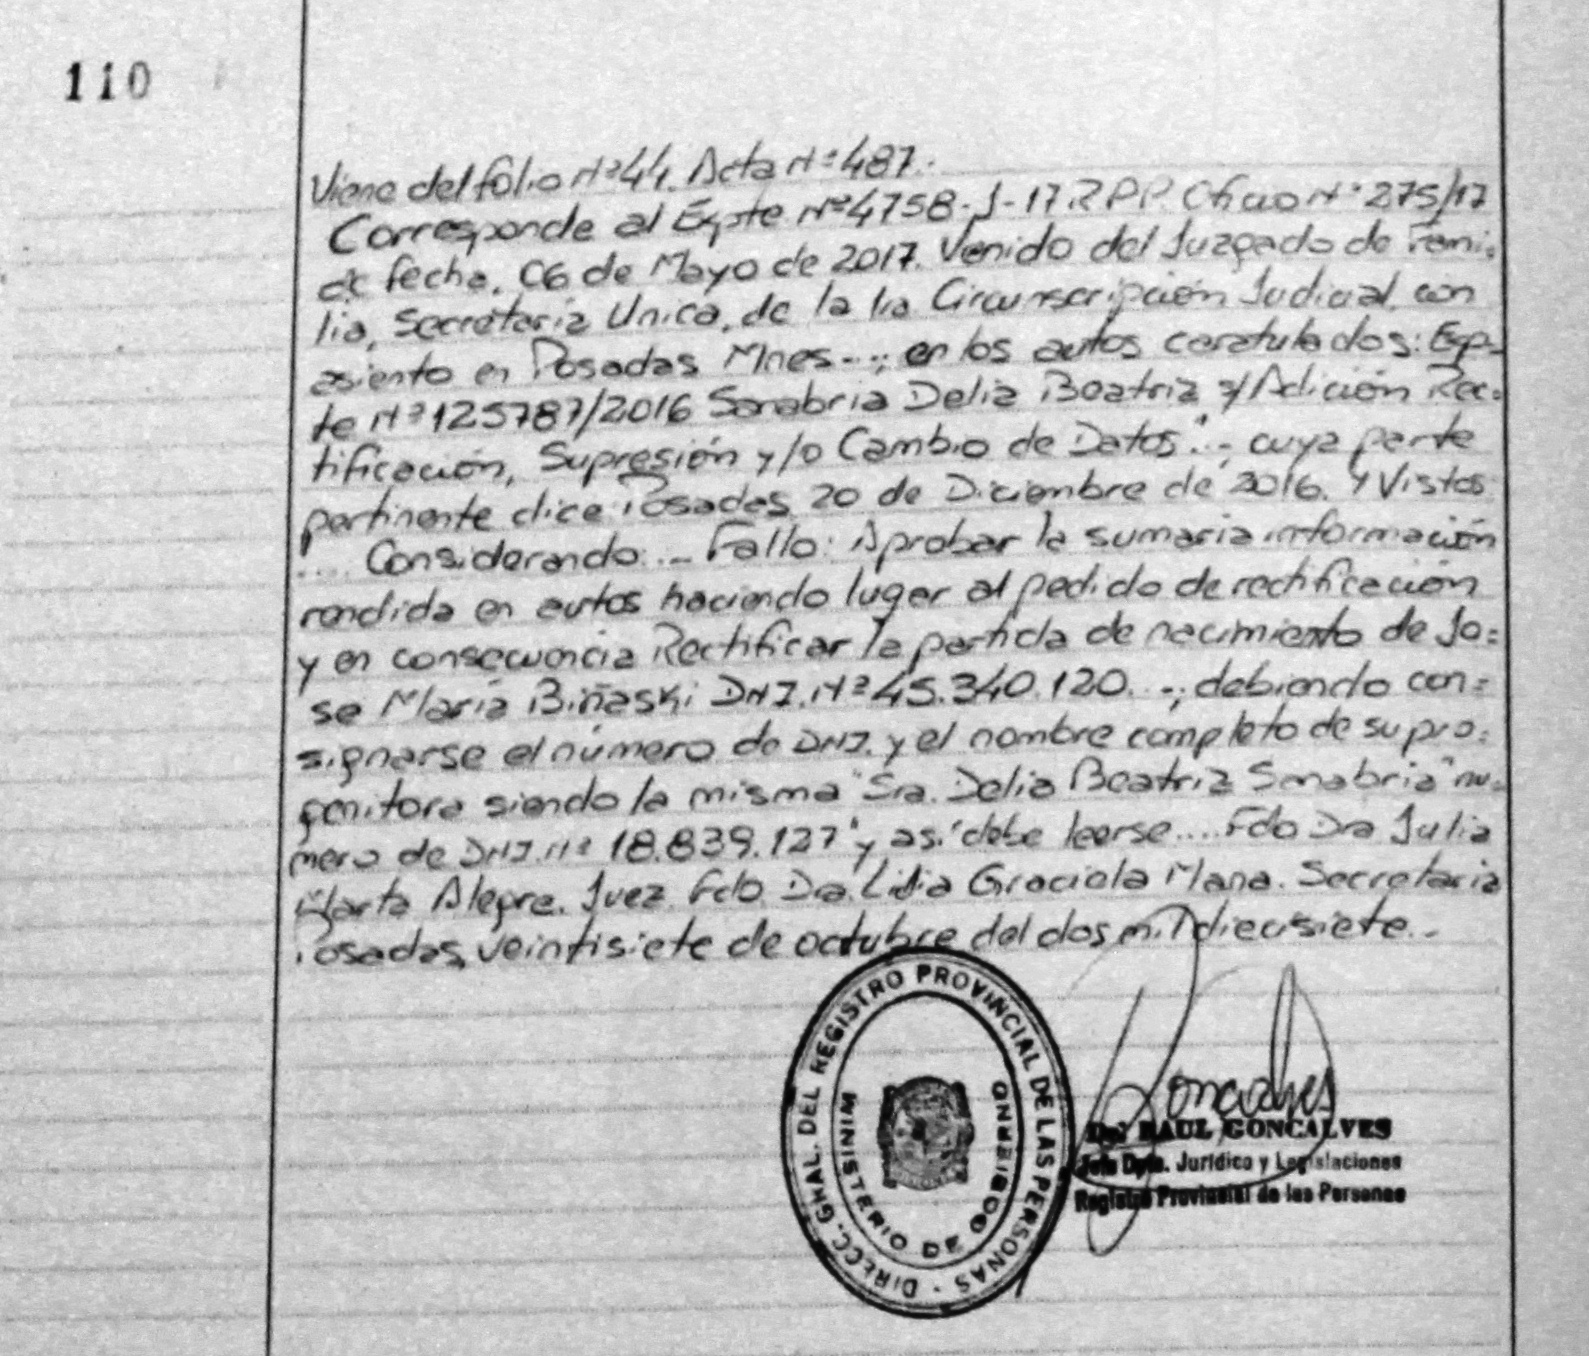 110
Viene del folio Nº44. Acta Nº487.-
Corresponde al Expte Nº4758-J-17.R.P.P. Oficio Nº275/17
de fecha. 06 de Mayo de 2017. Venido del Juzgado de Fami-
lia, Secretaría Unica, de la 1ra Circunscripción Judicial, con
asiento en Posadas Mnes--; en los autos caratulados: Exp-
te Nº125787/2016 Sanabria Delia Beatriz s/Adición Rec=
tificación, Supresión y/o Cambio de Datos".-, cuya parte
pertinente dice: Posadas, 20 de Diciembre de 2016. Y Vistos
.... Considerando:.- Fallo: Aprobar la sumaria información
rendida en autos haciendo lugar al pedido de rectificación
y en consecuencia Rectificar la partida de nacimiento de Jo=
se María Biñaski DNI. Nº 45.340.120. -; debiendo con=
signarse el número de DNI. y el nombre completo de su pro=
genitora siendo la misma "Sra. Delia Beatriz Sanabria" nu=
mero de DNI. Nº 18.839.127" y así debe leerse.... Fdo Dra Julia
Marta Alegre. Juez. Fdo. Dra. Lidia Graciela Mana. Secretaria
Posadas, veintisiete de octubre del dos mil diecisiete.-
DIRECC. GRAL. DEL REGISTRO PROVINCIAL DE LAS PERSONAS -
MINISTERIO DE GOBIERNO
Goncalves
RAUL GONCALVES
Jefe Dpto. Jurídico y Legislaciones
Registro Provincial de las Personas